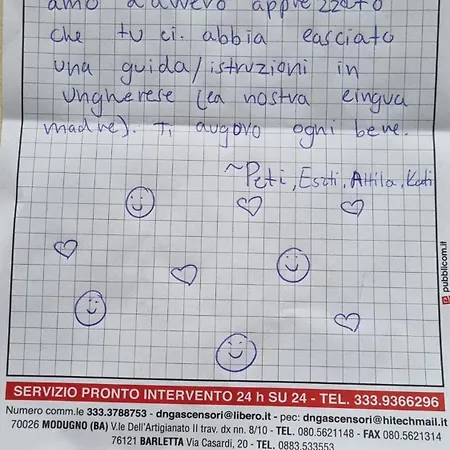 amo davvero apprezzato
che tu ci abbia lasciato
una guida/istruzioni in
Ungherese (la nostra lingua
madre). Ti auguro ogni bene.
~Peti, Eszti, Attila, Kati
pubblicom.it
SERVIZIO PRONTO INTERVENTO 24 h SU 24 - TEL. 333.9366296
Numero comm.le 333.3788753 - dngascensori@libero.it - pec: dngascensori@hitechmail.it
70026 MODUGNO (BA) V.le Dell'Artigianato II trav. dx nn. 8/10 - TEL. 080.5621148 - FAX 080.5621314
76121 BARLETTA Via Casardi, 20 - TEL. 0883.533553